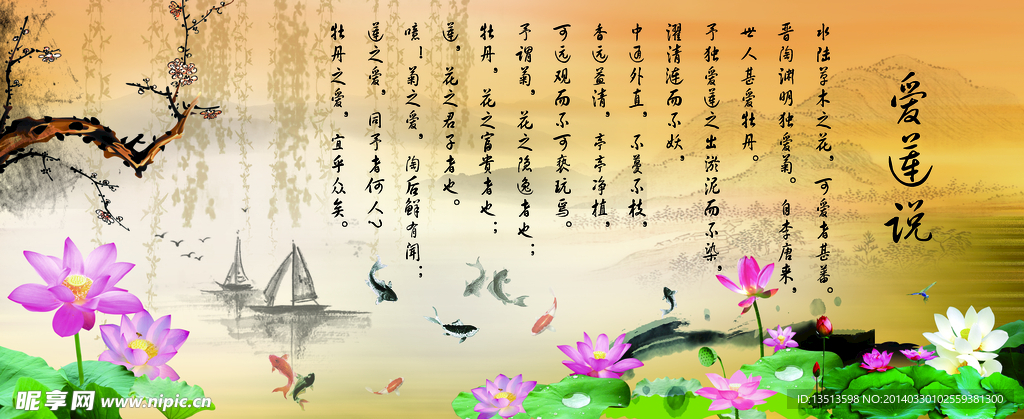 爱莲说
水陆草木之花，可爱者甚蕃。
晋陶渊明独爱菊。自李唐来，
世人甚爱牡丹。
予独爱莲之出淤泥而不染，
濯清涟而不妖，
中通外直，不蔓不枝，
香远益清，亭亭净植，
可远观而不可亵玩焉。
予谓菊，花之隐逸者也；
牡丹，花之富贵者也；
莲，花之君子者也。
噫！菊之爱，陶后鲜有闻；
莲之爱，同予者何人？
牡丹之爱，宜乎众矣。
昵享网 www.nipic.cn
ID:13513598 NO:20140330102559381300